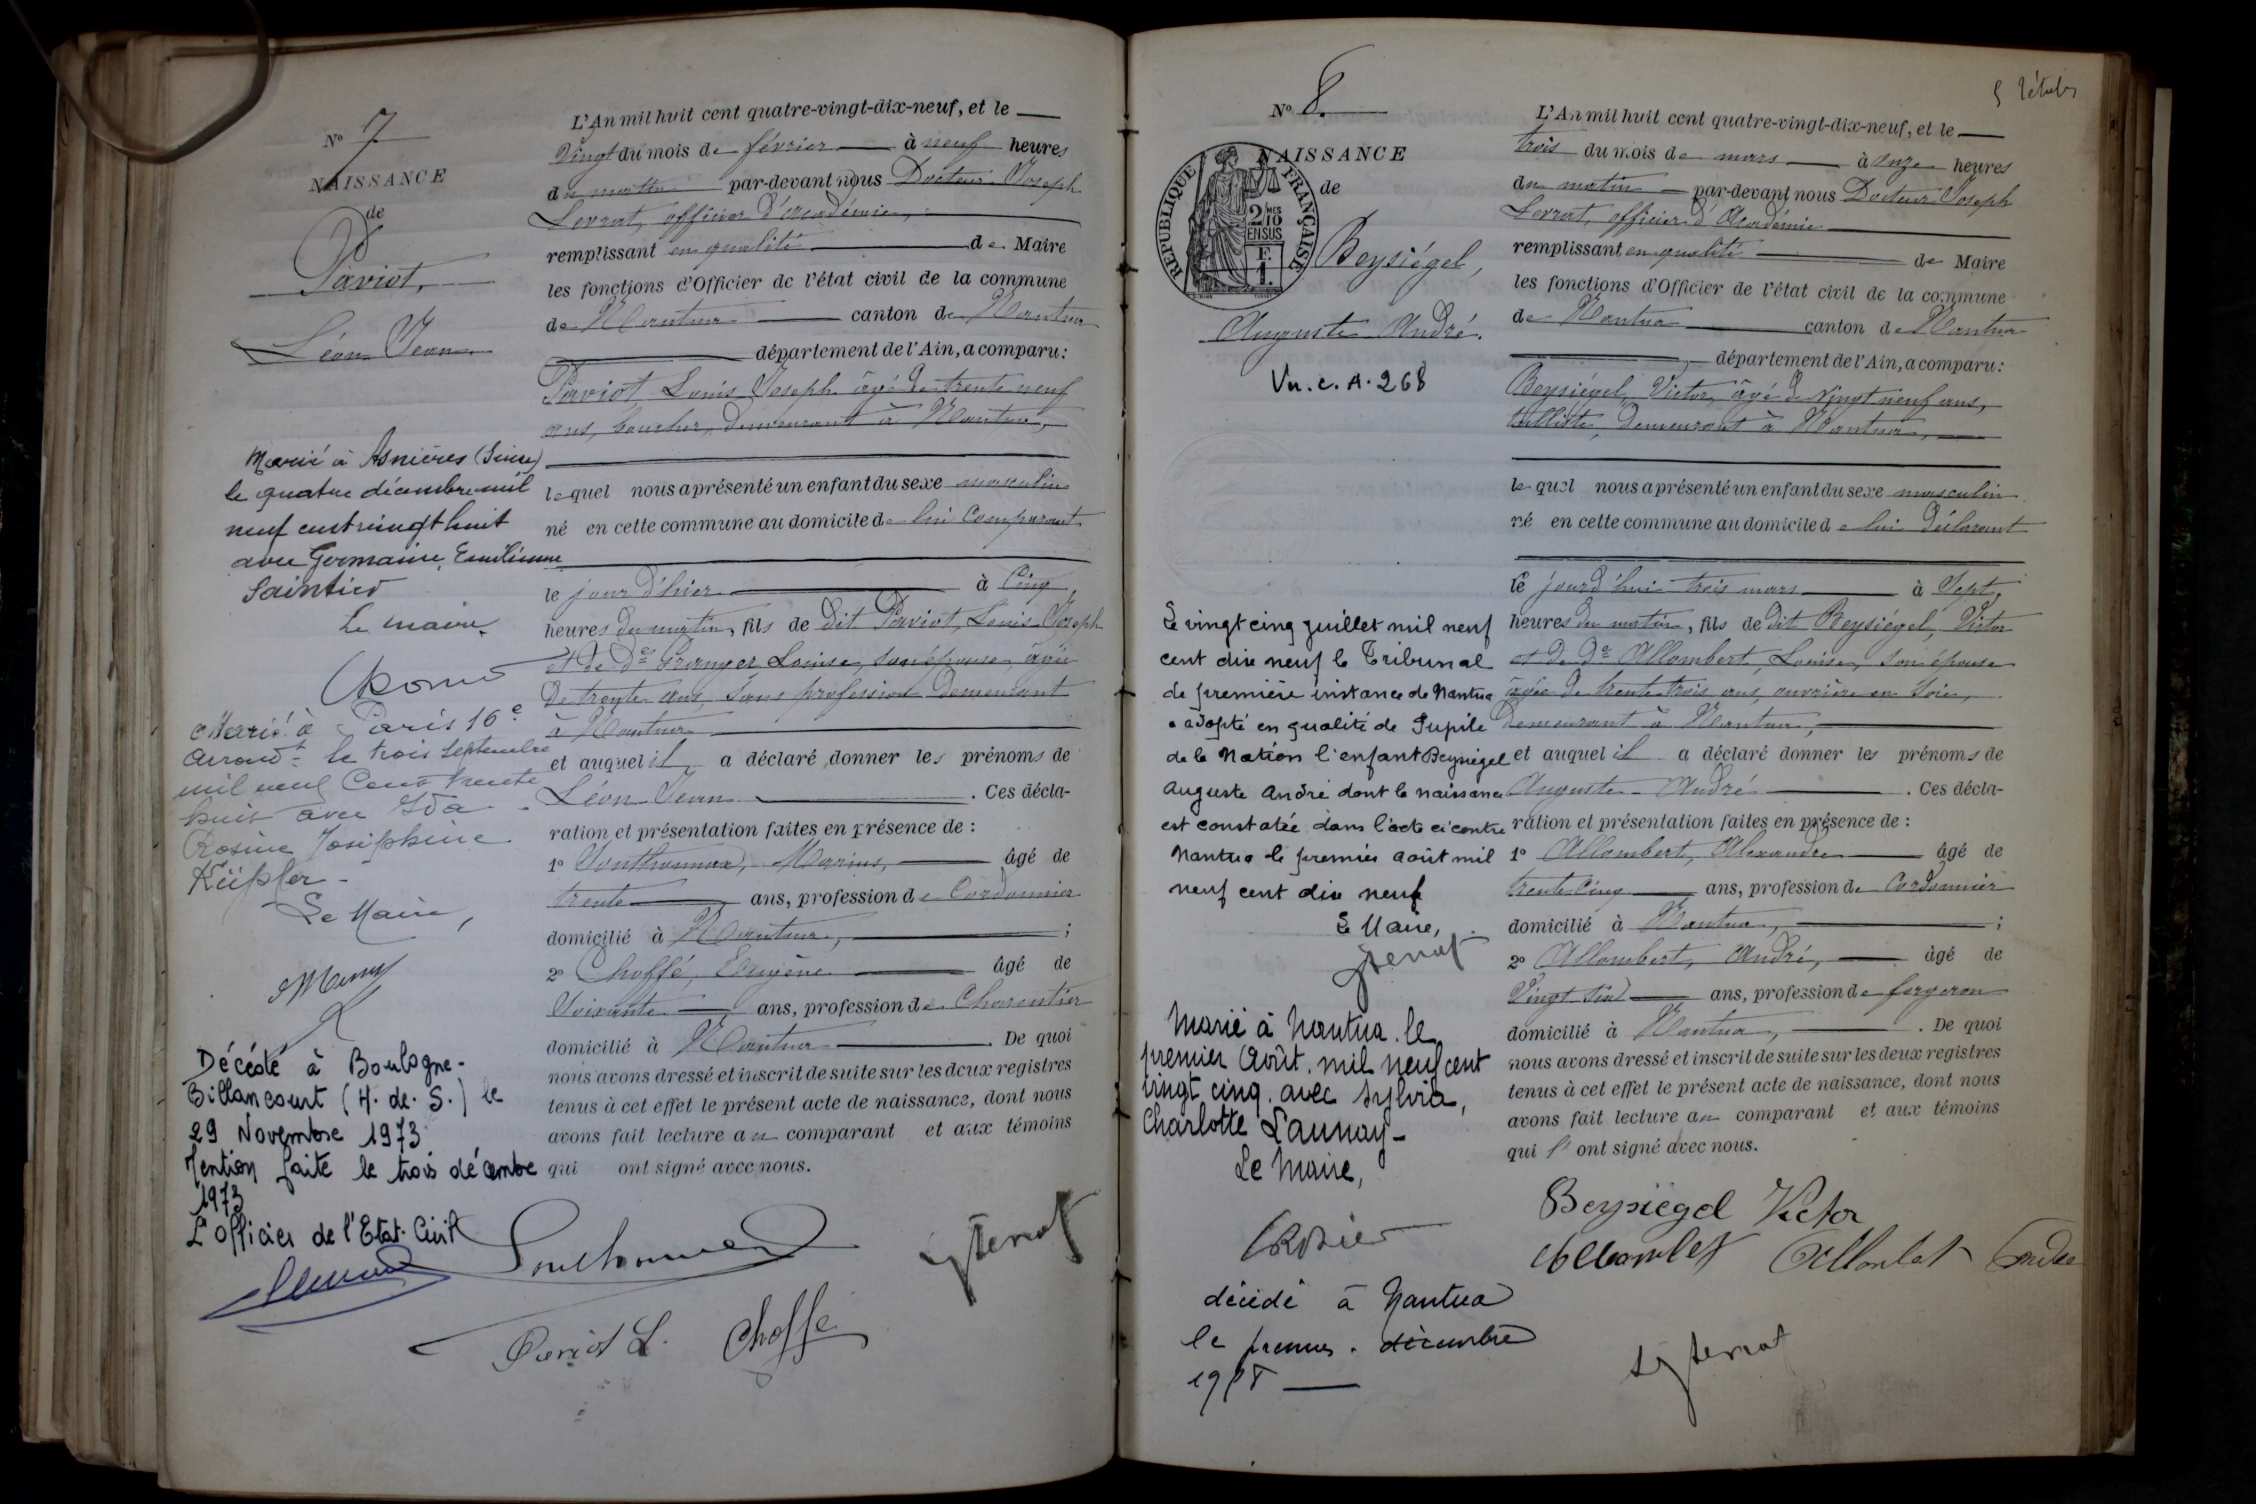 N° 7
NAISSANCE
de
Paviot,
Léon Jean
Marié à Asnières (Seine)
le quatre décembre mil
neuf cent vingt huit
avec Germaine, Emilienne
Saintier
Le maire,
Marié à Paris 16e
arrondt le trois septembre
mil neuf cent trente
huit avec Ida
Rosine Joséphine
Küpfer
Le Maire,
Décédé à Boulogne-
Billancourt (H. de. S.) le
29 Novembre 1973
Mention faite le trois décembre
1973
L'Officier de l'Etat-Civil
L'An mil huit cent quatre-vingt-dix-neuf, et le
Vingt du mois de février à neuf heures
du matin par-devant nous Docteur Joseph
Levrat, officier d'Académie,
remplissant en qualité de Maire
les fonctions d'Officier de l'état civil de la commune
de Nantua canton de Nantua
département de l'Ain, a comparu:
Paviot, Louis Joseph âgé de trente neuf
ans, boucher, demeurant à Nantua,
lequel nous a présenté un enfant du sexe masculin
né en cette commune au domicile de lui comparant
le jour d'hier à Cinq
heures du matin, fils de dit Paviot, Louis Joseph
et de De Granger Louise, son épouse, âgée
de trente ans, sans profession demeurant
à Nantua
et auquel il a déclaré donner les prénoms de
Léon Jean . Ces décla-
ration et présentation faites en présence de :
1° Sonthonnax, Marius, âgé de
trente ans, profession de Cordonnier
domicilié à Nantua, ;
2° Choffé, Eugène âgé de
Soixante ans, profession de Charpentier
domicilié à Nantua . De quoi
nous avons dressé et inscrit de suite sur les deux registres
tenus à cet effet le présent acte de naissance, dont nous
avons fait lecture au comparant et aux témoins
qui ont signé avec nous.
Sonthonnax
Paviot L. Choffé
N° 8.
NAISSANCE
de
RÉPUBLIQUE FRANÇAISE
2/10 MES
EN SUS
F.
1.
Beysiégel,
Auguste André.
Vu. c. A. 268
Le vingt cinq juillet mil neuf
cent dix neuf le Tribunal
de première instance de Nantua
a adopté en qualité de Pupile
de la Nation l'enfant Beysiegel
Auguste André dont la naissance
est constatée dans l'acte ci contre
Nantua le premier août mil
neuf cent dix neuf
Le Maire,
Marié à Nantua. le
premier Août. mil neuf cent
vingt cinq. avec Sylvia,
Charlotte Launay -
Le Maire,
décédé à Nantua
le premier. décembre
L'An mil huit cent quatre-vingt-dix-neuf, et le
trois du mois de mars à onze heures
du matin par-devant nous Docteur Joseph
Levrat, officier d'Académie
remplissant en qualité de Maire
les fonctions d'Officier de l'état civil de la commune
de Nantua canton de Nantua
département de l'Ain, a comparu:
Beysiégel, Victor, âgé de Vingt neuf ans,
tulliste, demeurant à Nantua,
lequel nous a présenté un enfant du sexe masculin
né en cette commune au domicile de lui déclarant
le jourd'hui trois mars à Sept
heures du matin, fils de dit Beysiégel, Victor
et de De Allombert, Louise, son épouse
âgée de trente trois ans, ouvrière en soie,
demeurant à Nantua,
et auquel il a déclaré donner les prénoms de
Auguste - André . Ces décla-
ration et présentation faites en présence de :
1° Allombert, Alexandre âgé de
trente cinq ans, profession de Cordonnier
domicilié à Nantua, ;
2° Allombert, André, âgé de
Vingt six ans, profession de forgeron
domicilié à Nantua, . De quoi
nous avons dressé et inscrit de suite sur les deux registres
tenus à cet effet le présent acte de naissance, dont nous
avons fait lecture au comparant et aux témoins
qui ont signé avec nous.
Beysiégel Victor
Allombert Allombert André